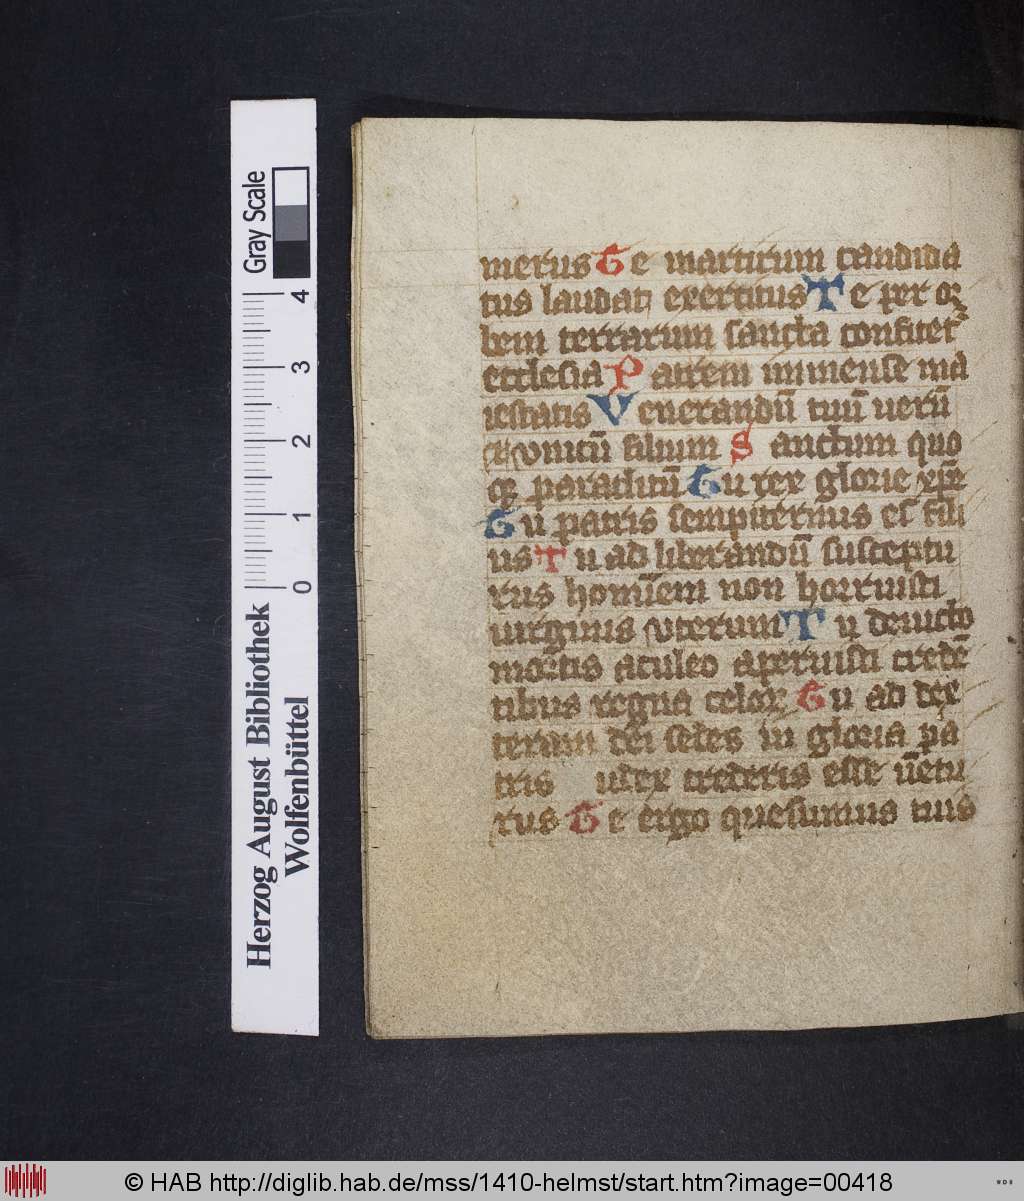 Gray Scale
4
3
2
1
0
Herzog August Bibliothek
Wolfenbüttel
merus Te martirum candida
tus laudat exercitus Te per or
bem terrarum sancta confitet᷑
ecclesia Patrem inmense ma
iestatis Venerandū tuū uerū
et vnicū filium Sanctum quo
qꝫ paraclitū Tu rex glorie xp̄e
Tu patris sempiternus es fili
us Tu ad liberandū susceptu
rus hominem non horruisti
uirginis vterum Tu deuicto
mortis aculeo aperuisti credē
tibus regna celoꝝ Tu ad dex
teram dei sedes in gloria pa
tris udex crederis esse uētu
rus Te ergo quesumus tuis
© HAB http://diglib.hab.de/mss/1410-helmst/start.htm?image=00418